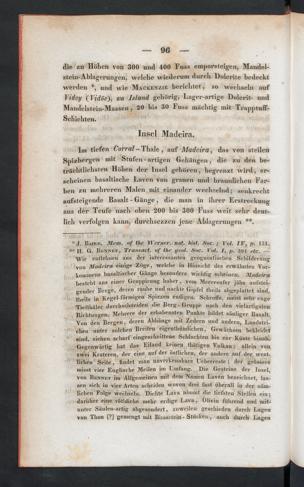 — 96 —
die zu Höhen von 300 und 400 Fuss emporsteigen, Mandel-
stein-Ablagerungen, welche wiederum durch Dolerite bedeckt
werden *, und wie Mackenzie berichtet, so wechseln auf
Vidoy (Vidöe), zu Island gehörig, Lager-artige Dolerit- und
Mandelstein-Massen, 20 bis 30 Fuss mächtig mit Trapptuff-
Schichten.
Insel Madeira.
Im tiefen Corral-Thale, auf Madeira, das von steilen
Spizbergen mit Stufen-artigen Gehängen, die zu den be-
trächtlichsten Höhen der Insel gehören, begrenzt wird, er-
scheinen basaltische Laven von grauen und braunlichen Far-
ben zu mehreren Malen mit einander wechselnd; senkrecht
aufsteigende Basalt-Gänge, die man in ihrer Erstreckung
aus der Teufe nach oben 200 bis 300 Fuss weit sehr deut-
lich verfolgen kann, durchsezzen jene Ablagerungen **.
* J. Mem. of the Werner. nat. hist. Soc.; Vol. IV, p.
** H. G. Bennet, Transact. of the geol. Soc. Vol. I, p. 391 etc. —
Wir entlehnen aus der interessanten geognostischen Schilderung
von Madeira einige Züge, welche in Hinsicht des erwähnten Vor-
kommens basaltischer Gänge besonders wichtig scheinen. Madeira
besteht aus einer Gruppirung hoher, vom Meeresufer jäh anstei-
gender Berge, deren rauhe und nackte Gipfel flach abgeplattet sind,
theils in Kegel-förmigen Spizzen endigen. Schroffe, meist sehr enge
Thaltiefen durchschneiden die Berg-Gruppe nach den vielartigsten
Richtungen. Mehrere der erhabensten Punkte bildet säuliger Basalt.
Von den Bergen, deren Abhänge mit Zedern und andern, Landstri-
chen unter solchen Breiten eigenthümlichen, Gewächsen bekleidet
sind, ziehen scharf eingeschnittene Schluchten bis zur Küste hinab.
Gegenwärtig hat das Eiland keinen thätigen Vulkan; allein von
zwei Krateren, der eine auf der östlichen, der andere auf der west-
lichen Seite, findet man unverkennbare Ueberreste; der grössere
misst vier Englische Meilen im Umfang. Die Gesteine der Insel,
von Bennet im Allgemeinen mit dem Namen Laven bezeichnet, las-
sen sich in vier Arten scheiden wovon drei fast überall in der näm-
lichen Folge wechseln. Dichte Lava nimmt die tiefsten Stellen ein;
darüber eine röthliche mehr erdige Lava, Olivin führend und mit-
unter Säulen-artig abgesondert, zuweilen geschieden durch Lagen
von Thon [?] gemengt mit Bimsstein-Stücken, auch durch Lagen